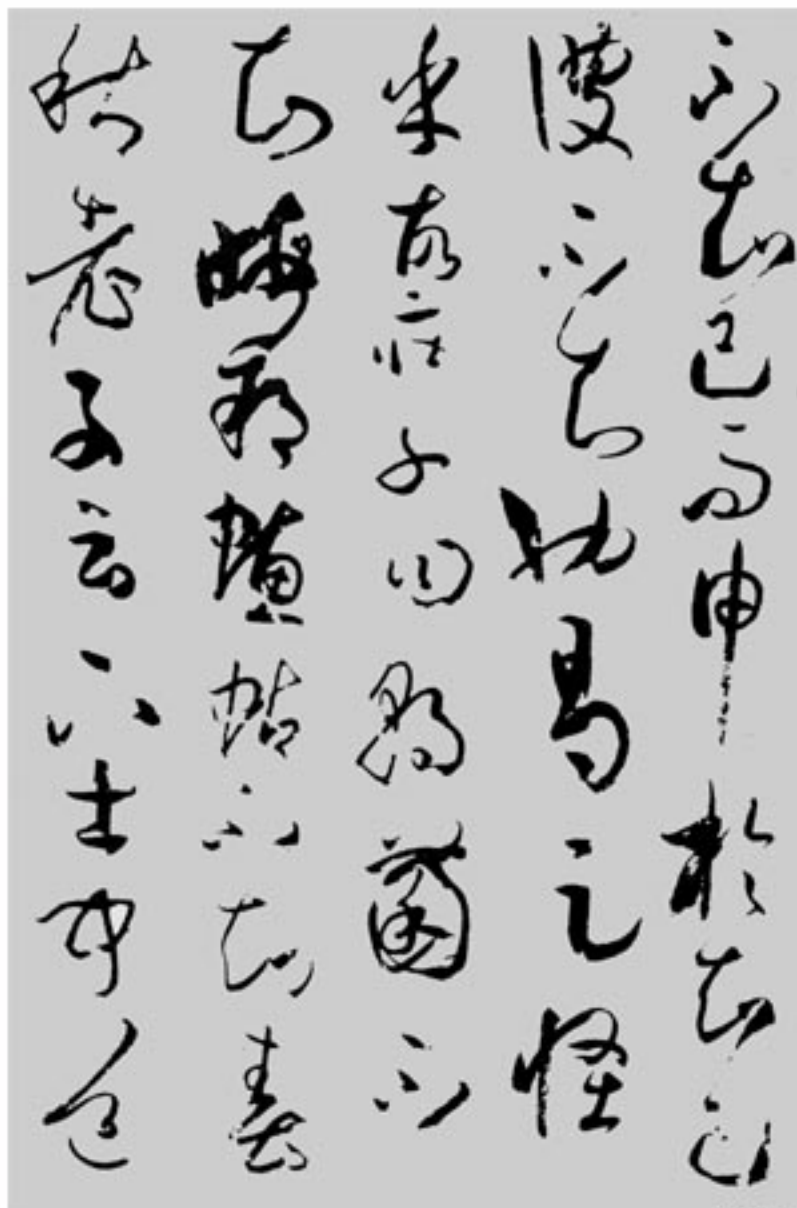 不知己而申於知己
彼不知也曷足怪
乎故莊子曰朝菌不
知晦朔蟪蛄不知春
秋老子云下士聞道